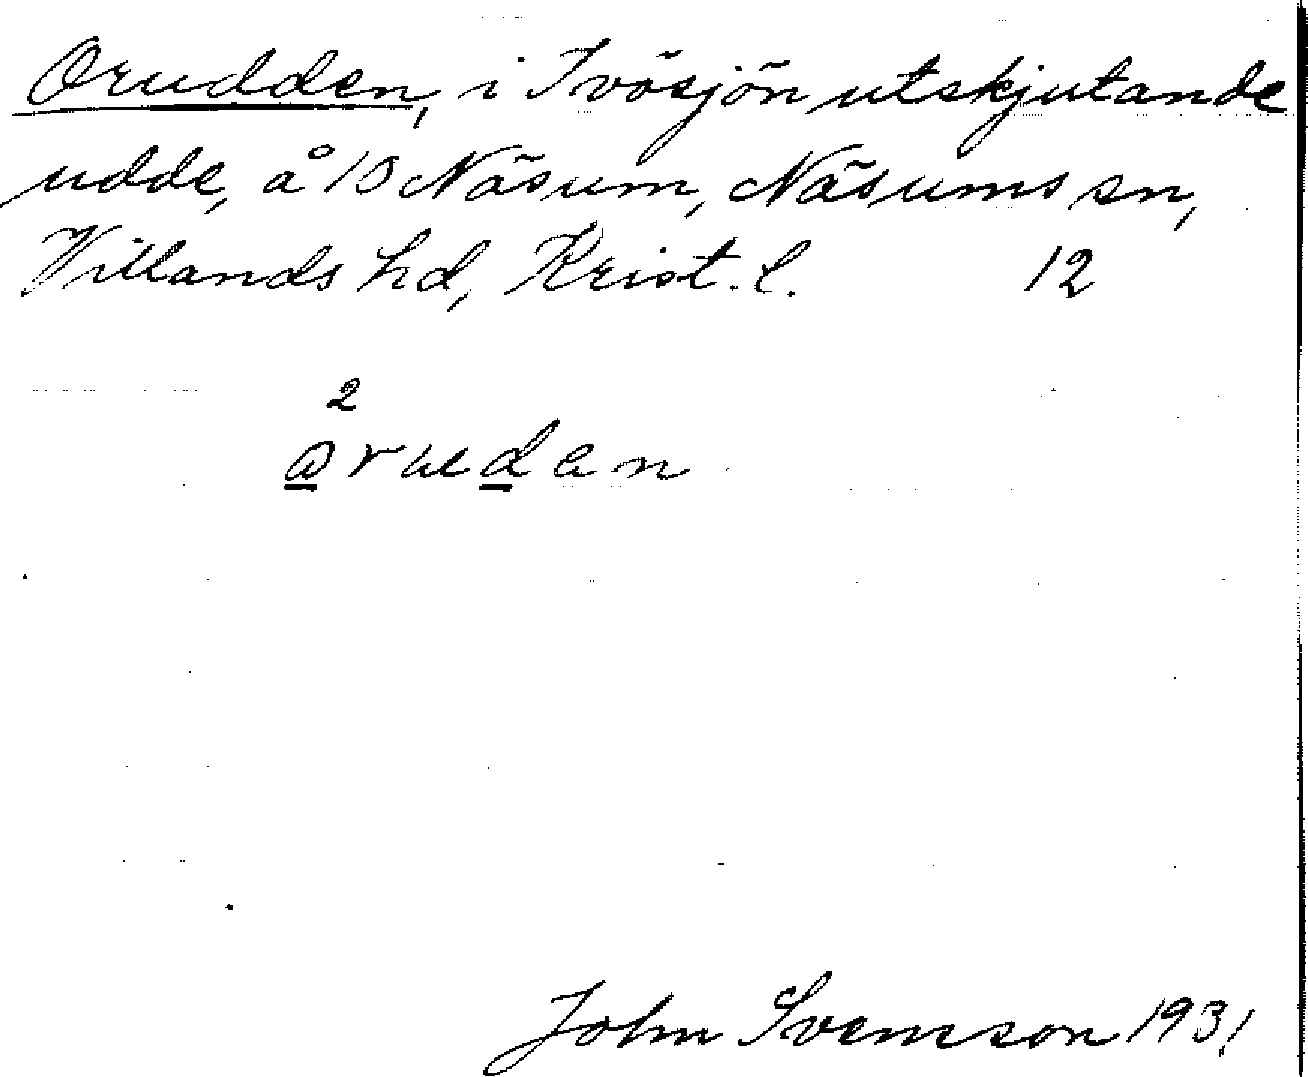 Orudden, i Ivösjön utskjutande
udde, å 10 Näsum, Näsums sn,
Villands hd, Krist. l. 12
2
oruden
John Svensson 1931